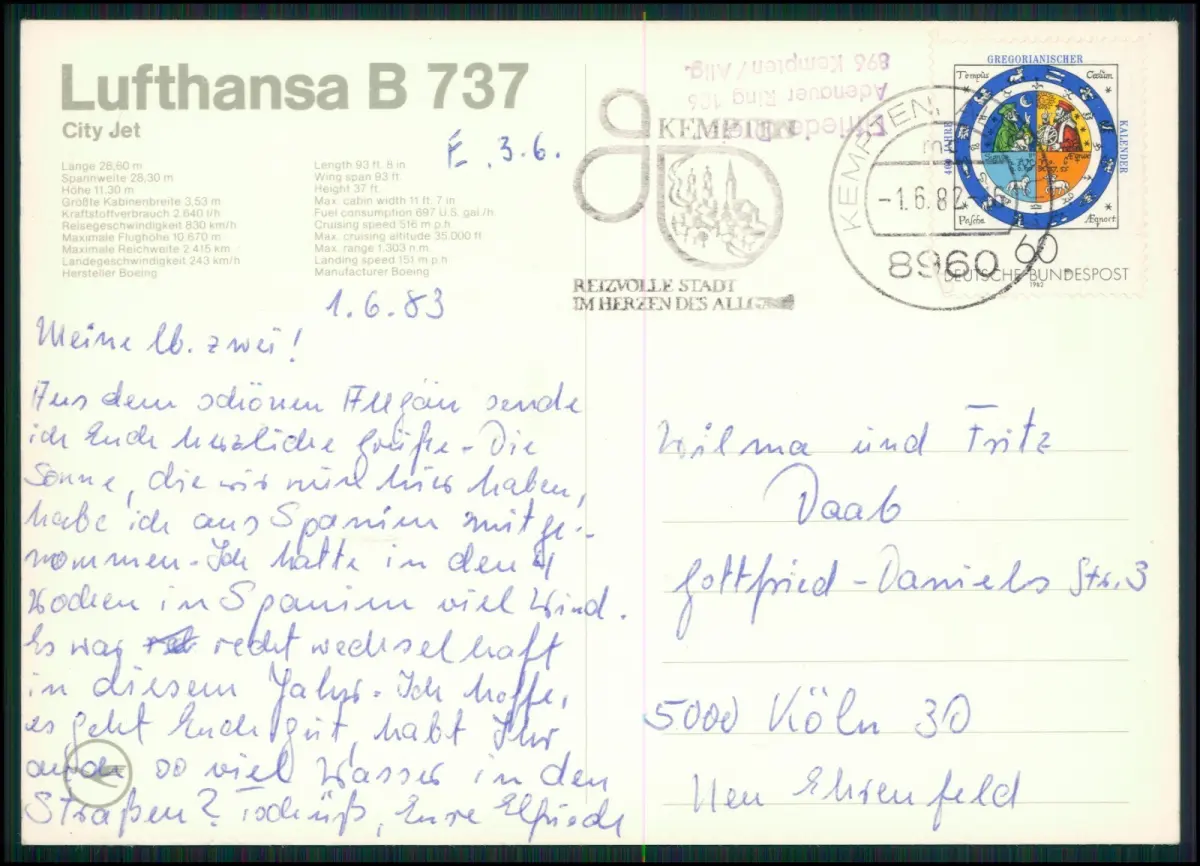 Lufthansa B 737
City Jet
Länge 28,60 m
Spannweite 28,30 m
Höhe 11,30 m
Größte Kabinenbreite 3,53 m
Kraftstoffverbrauch 2 640 l/h
Reisegeschwindigkeit 830 km/h
Maximale Flughöhe 10 670 m
Maximale Reichweite 2 415 km
Landegeschwindigkeit 243 km/h
Hersteller Boeing
Length 93 ft. 8 in
Wing span 93 ft.
Height 37 ft.
Max. cabin width 11 ft. 7 in
Fuel consumption 697 U.S. gal./h
Cruising speed 516 m.p.h
Max. cruising altitude 35.000 ft
Max. range 1.303 n.m.
Landing speed 151 m.p.h
Manufacturer Boeing
E. 3.6.
Elfriede
Adenauer Ring 106
896 Kempten/Allg.
KEMPTEN
REIZVOLLE STADT
IM HERZEN DES ALLG
KEMPTEN
-1.6.82-
8960
GREGORIANISCHER
KALENDER
400 JAHRE
Tempus
Cœlum
Pascha
Æqnoct
60
DEUTSCHE BUNDESPOST
1982
1.6.83
Meine lb. zwei!
Aus dem schönen Allgäu sende
ich Euch herzliche Grüße - Die
Sonne, die wir nun hier haben,
habe ich aus Spanien mitge-
nommen - Ich hatte in den 4
Wochen in Spanien viel Wind.
Es war recht wechselhaft
in diesem Jahr. Ich hoffe,
es geht Euch gut, habt Ihr
auch so viel Wasser in den
Straßen? Tschüß, Eure Elfriede
Wilma und Fritz
Daab
Gottfried-Daniels Str. 3
5000 Köln 30
Neu Ehrenfeld